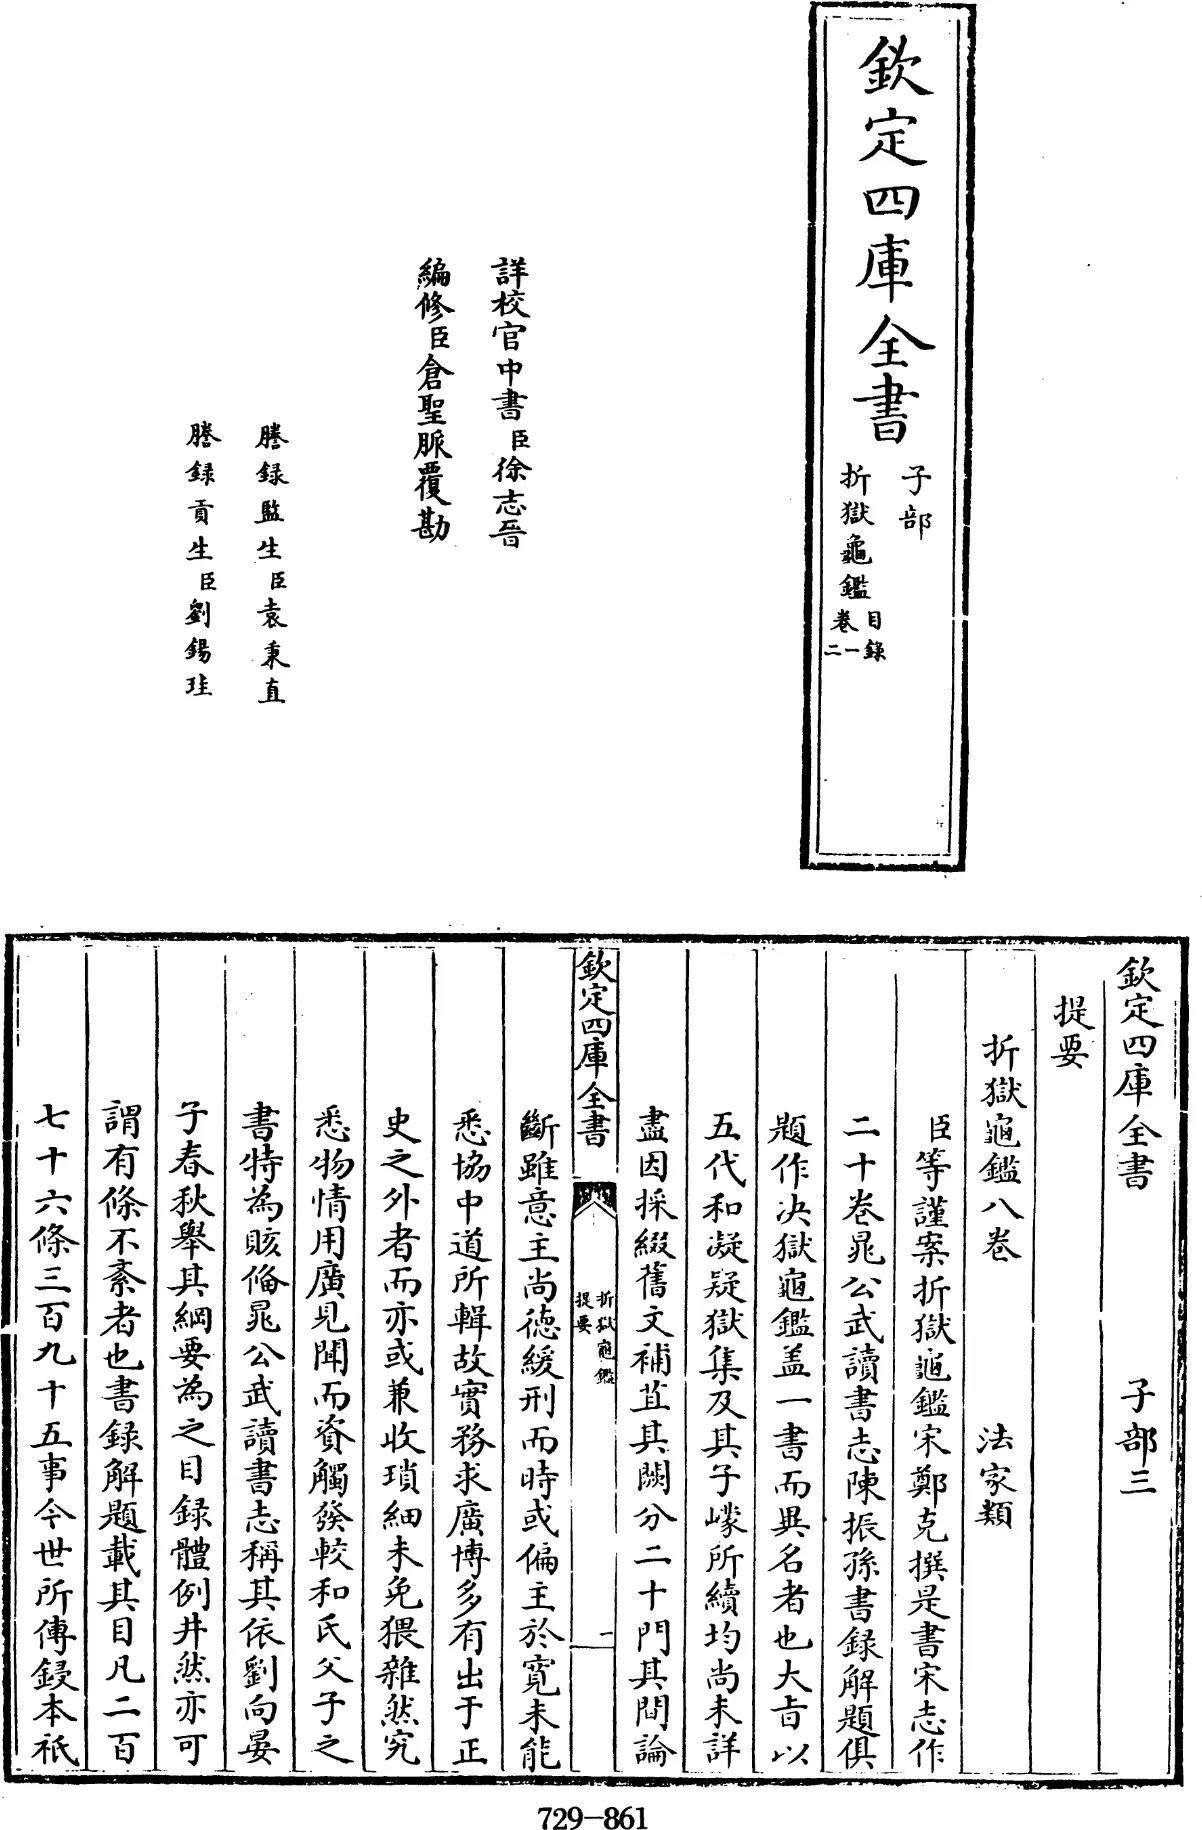 欽定四庫全書
子部
折獄龜鑑
目錄
卷一
二
詳校官中書臣徐志晉
編修臣倉聖脈覆勘
謄録監生臣袁秉直
謄録貢生臣劉錫珪
欽定四庫全書 子部三
提要
折獄龜鑑八卷 法家類
臣等謹案折獄龜鑑宋鄭克撰是書宋志作
二十卷晁公武讀書志陳振孫書録解題俱
題作决獄龜鑑盖一書而異名者也大旨以
五代和凝疑獄集及其子㠓所續均尚未詳
盡因採綴舊文補苴其闕分二十門其間論
欽定四庫全書
折獄龜鑑
提要
一
斷雖意主尚德緩刑而時或偏主於寛未能
悉協中道所輯故實務求廣博多有出于正
史之外者而亦或兼收瑣細未免猥雜然究
悉物情用廣見聞而資觸發較和氏父子之
書特為賅俻晁公武讀書志稱其依劉向晏
子春秋舉其綱要為之目録體例井然亦可
謂有條不紊者也書録解題載其目凡二百
七十六條三百九十五事今世所傳鋟本祇
729-861